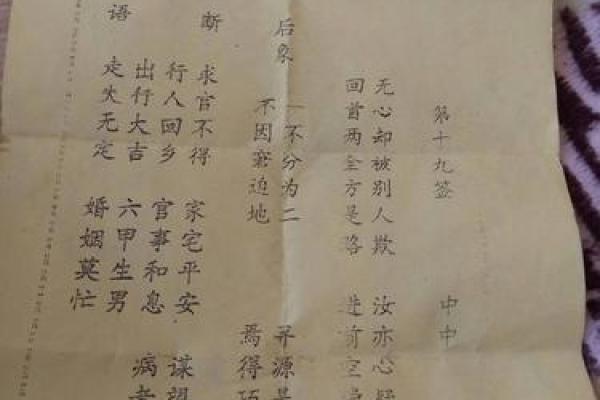 第十九签 中中
无心却被别人欺 汝亦心疑
回首两全方是路 进前空
后象
一不分为二 源是
不因窘迫地 焉得巧
断语
求官不得 家宅平安 谋望
行人回乡 官事和息 病者
出行大吉 六甲生男
走失无定 婚姻莫忙